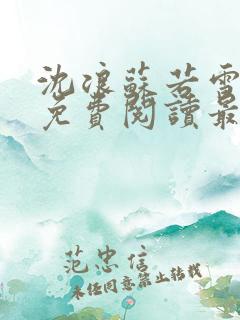 沈浪蘇若雪
免費閱讀最
范忠信
未經同意禁止轉載